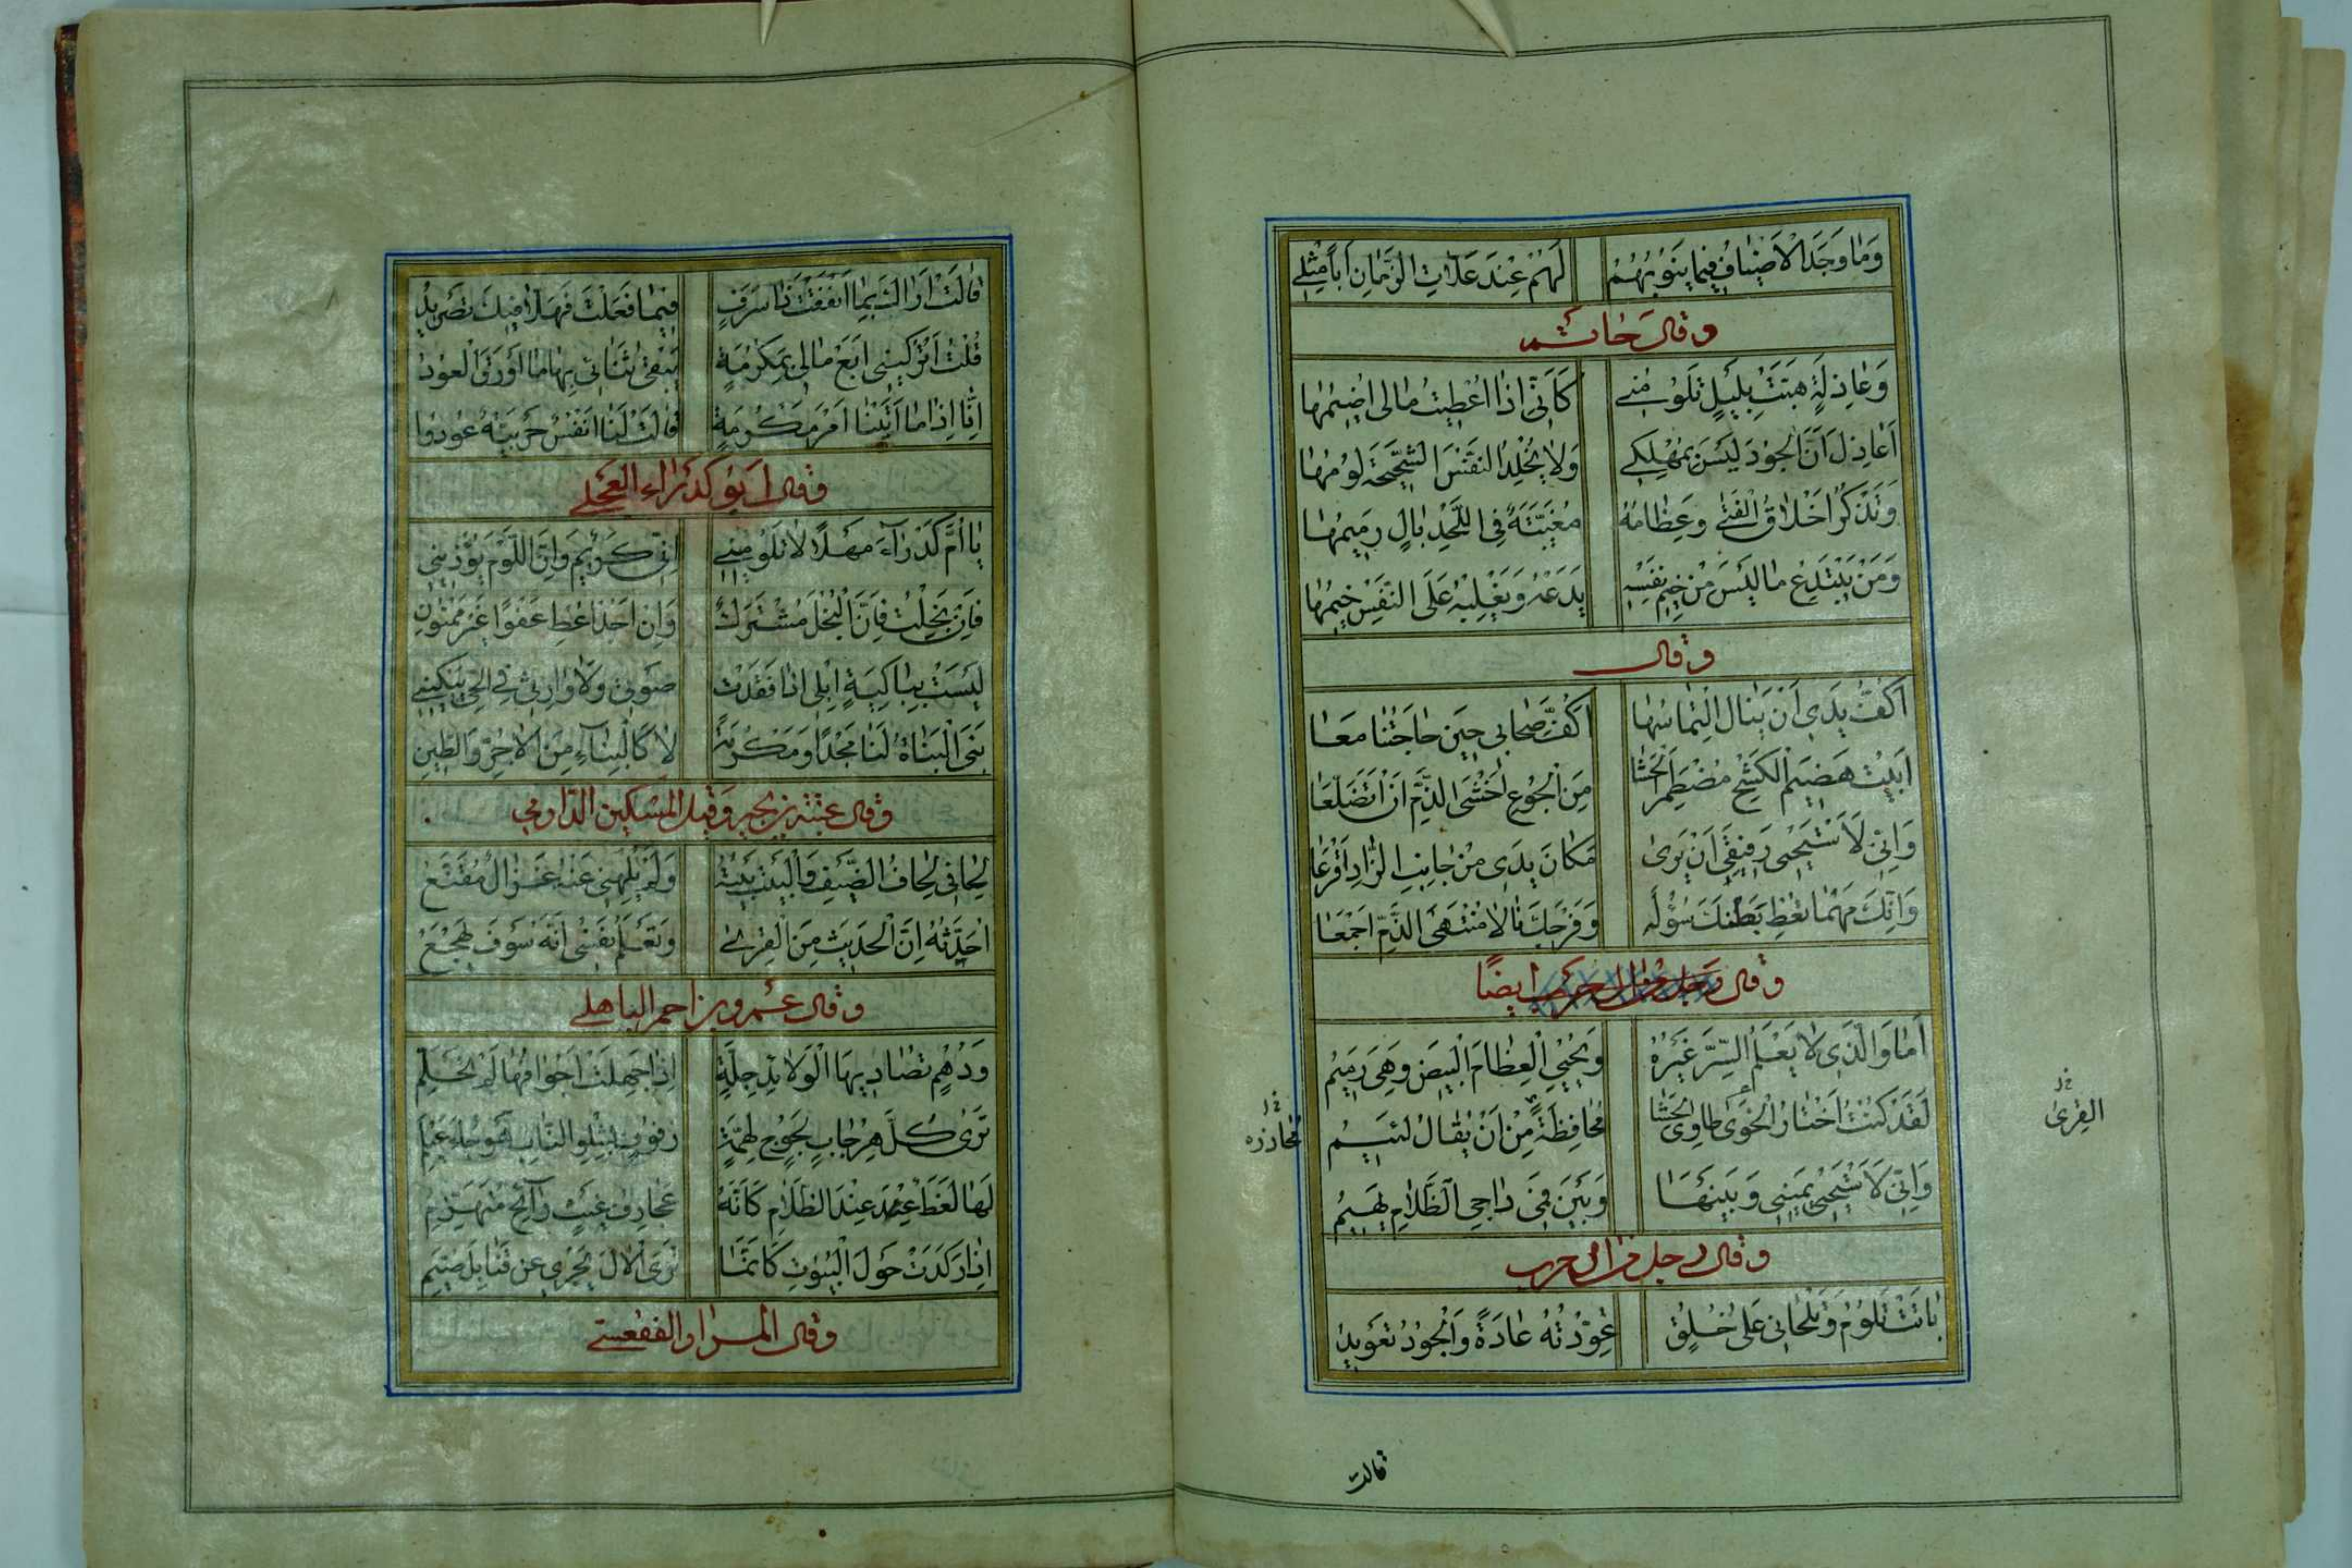 وَمَا وَجَدَ الْاَضْيَافُ فِيمَا يَنُوبُهُمْ لَهُمْ عِنْدَ عَلَّاتِ الزَّمَانِ اَبًا مِثْلِي
وقال حاتم
وَعَاذِلَةٍ هَبَّتْ بِلَيْلٍ تَلُومُنِي كَاَنِّي اِذَا اَعْطَيْتُ مَالِي اَضِيمُهَا
اَعَاذِلَ اَنَّ الْجُودَ لَيْسَ بِمُهْلِكِي وَلَا يُخْلِدُ النَّفْسَ الشَّحِيحَةَ لُومُهَا
وَتَذْكُرُ اَخْلَاقُ الْفَتَى وَعِظَامُهُ مُغَيَّبَةٌ فِي اللَّحْدِ بَالٍ رَمِيمُهَا
وَمَنْ يَبْتَدِعْ مَا لَيْسَ مِنْ خِيمِ نَفْسِهِ يَدَعْهُ وَيَغْلِبْهُ عَلَى النَّفْسِ خِيمُهَا
وقال
اَكُفُّ يَدِي اَنْ يَنَالَ الْتِمَاسُهَا اَكُفَّ صِحَابِي حِينَ حَاجَتُنَا مَعَا
اَبِيتُ هَضِيمَ الْكَشْحِ مُضْطَمِرَ الْحَشَا مِنَ الْجُوعِ اَخْشَى الذَّمَّ اَنْ اَتَضَلَّعَا
وَاِنِّي لَاَسْتَحْيِي رَفِيقِي اَنْ يَرَى مَكَانَ يَدِي مِنْ جَانِبِ الزَّادِ اَقْرَعَا
وَاِنَّكَ مَهْمَا تُعْطِ بَطْنَكَ سُؤْلَهُ وَفَرْجَكَ نَالَا مُنْتَهَى الذَّمِّ اَجْمَعَا
وقال ايضًا
اَمَا وَالَّذِي لَا يَعْلَمُ السِّرَّ غَيْرُهُ وَيُحْيِي الْعِظَامَ الْبِيضَ وَهِيَ رَمِيمُ
لَقَدْ كُنْتُ اَخْتَارُ الْخَوَى طَاوِيَ الْحَشَا مُحَافِظَةً مِنْ اَنْ يُقَالَ لَئِيمُ
القِرى
محاذرة
وَاِنِّي لَاَسْتَحْيِي يَمِينِي وَبَيْنَهَا وَبَيْنَ فَمِي دَاجِي الظَّلَامِ بَهِيمُ
وقال رجل من آل حرب
بَاتَتْ تَلُومُ وَتَلْحَانِي عَلَى خُلُقٍ عُوِّدْتُهُ عَادَةً وَالْجُودُ تَعْوِيدُ
قالت
قَالَتْ اَرَاكَ بِمَا اَنْفَقْتَ ذَا سَرَفٍ فِيمَا فَعَلْتَ فَهَلَّا فِيكَ تَصْرِيدُ
قُلْتُ اتْرُكِينِي اَبِعْ مَالِي بِمَكْرُمَةٍ يَبْقَى ثَنَائِي بِهَا مَا اَوْرَقَ الْعُودُ
اِنَّا اِذَا مَا اَتَيْنَا اَمْرَ مَكْرُمَةٍ قَالَتْ لَنَا اَنْفُسٌ حَرْبِيَّةٌ عُودُوا
وقال ابو كدراء العجلي
يَا اُمَّ كَدْرَاءَ مَهْلًا لَا تَلُومِينِي اِنِّي كَرِيمٌ وَاِنَّ اللَّوْمَ يُؤْذِينِي
فَاِنْ بَخِلْتُ فَاِنَّ الْبُخْلَ مُشْتَرَكٌ وَاِنْ اَجُدْ اُعْطِ عَفْوًا غَيْرَ مَمْنُونِ
لَيْسَتْ بِبَاكِيَةٍ اِبِلِي اِذَا فَقَدَتْ صَوْتِي وَلَا وَارِثِي فِي الْحَيِّ يَبْكِينِي
بَنَى الْبُنَاةُ لَنَا مَجْدًا وَمَكْرُمَةً لَا كَالْبِنَاءِ مِنَ الْآجُرِّ وَالطِّينِ
وقال عتبة بن بجير وقيل المسكين الدارمي
لِحَافِي لِحَافُ الضَّيْفِ وَالْبَيْتُ بَيْتُهُ وَلَمْ يُلْهِنِي عَنْهُ غَزَالٌ مُقَنَّعُ
اُحَدِّثُهُ اِنَّ الْحَدِيثَ مِنَ الْقِرَى وَتَعْلَمُ نَفْسِي اَنَّهُ سَوْفَ يَهْجَعُ
وقال عمرو بن احمر الباهلي
وَدُهْمٍ تُصَادِيهَا الْوَلَائِدُ جِلَّةٍ اِذَا جَهِلَتْ اَجْوَافُهَا لَمْ تَحَلَّمِ
تَرَى كُلَّ هِرْجَابٍ لَجُوجٍ لِهَمَّةٍ زَفُوفٍ بِشِلْوِ النَّابِ
لَهَا لَغَطٌ عِنْدَ الظَّلَامِ كَاَنَّهُ عَجَارِفُ غَيْثٍ رَائِحٍ مُتَهَزِّمِ
اِذَا رَكَدَتْ حَوْلَ الْبُيُوتِ كَاَنَّمَا تَرَى الْآلَ يَجْرِي عَنْ قَنَابِلَ صُيَّمِ
وقال المرار الفقعسي